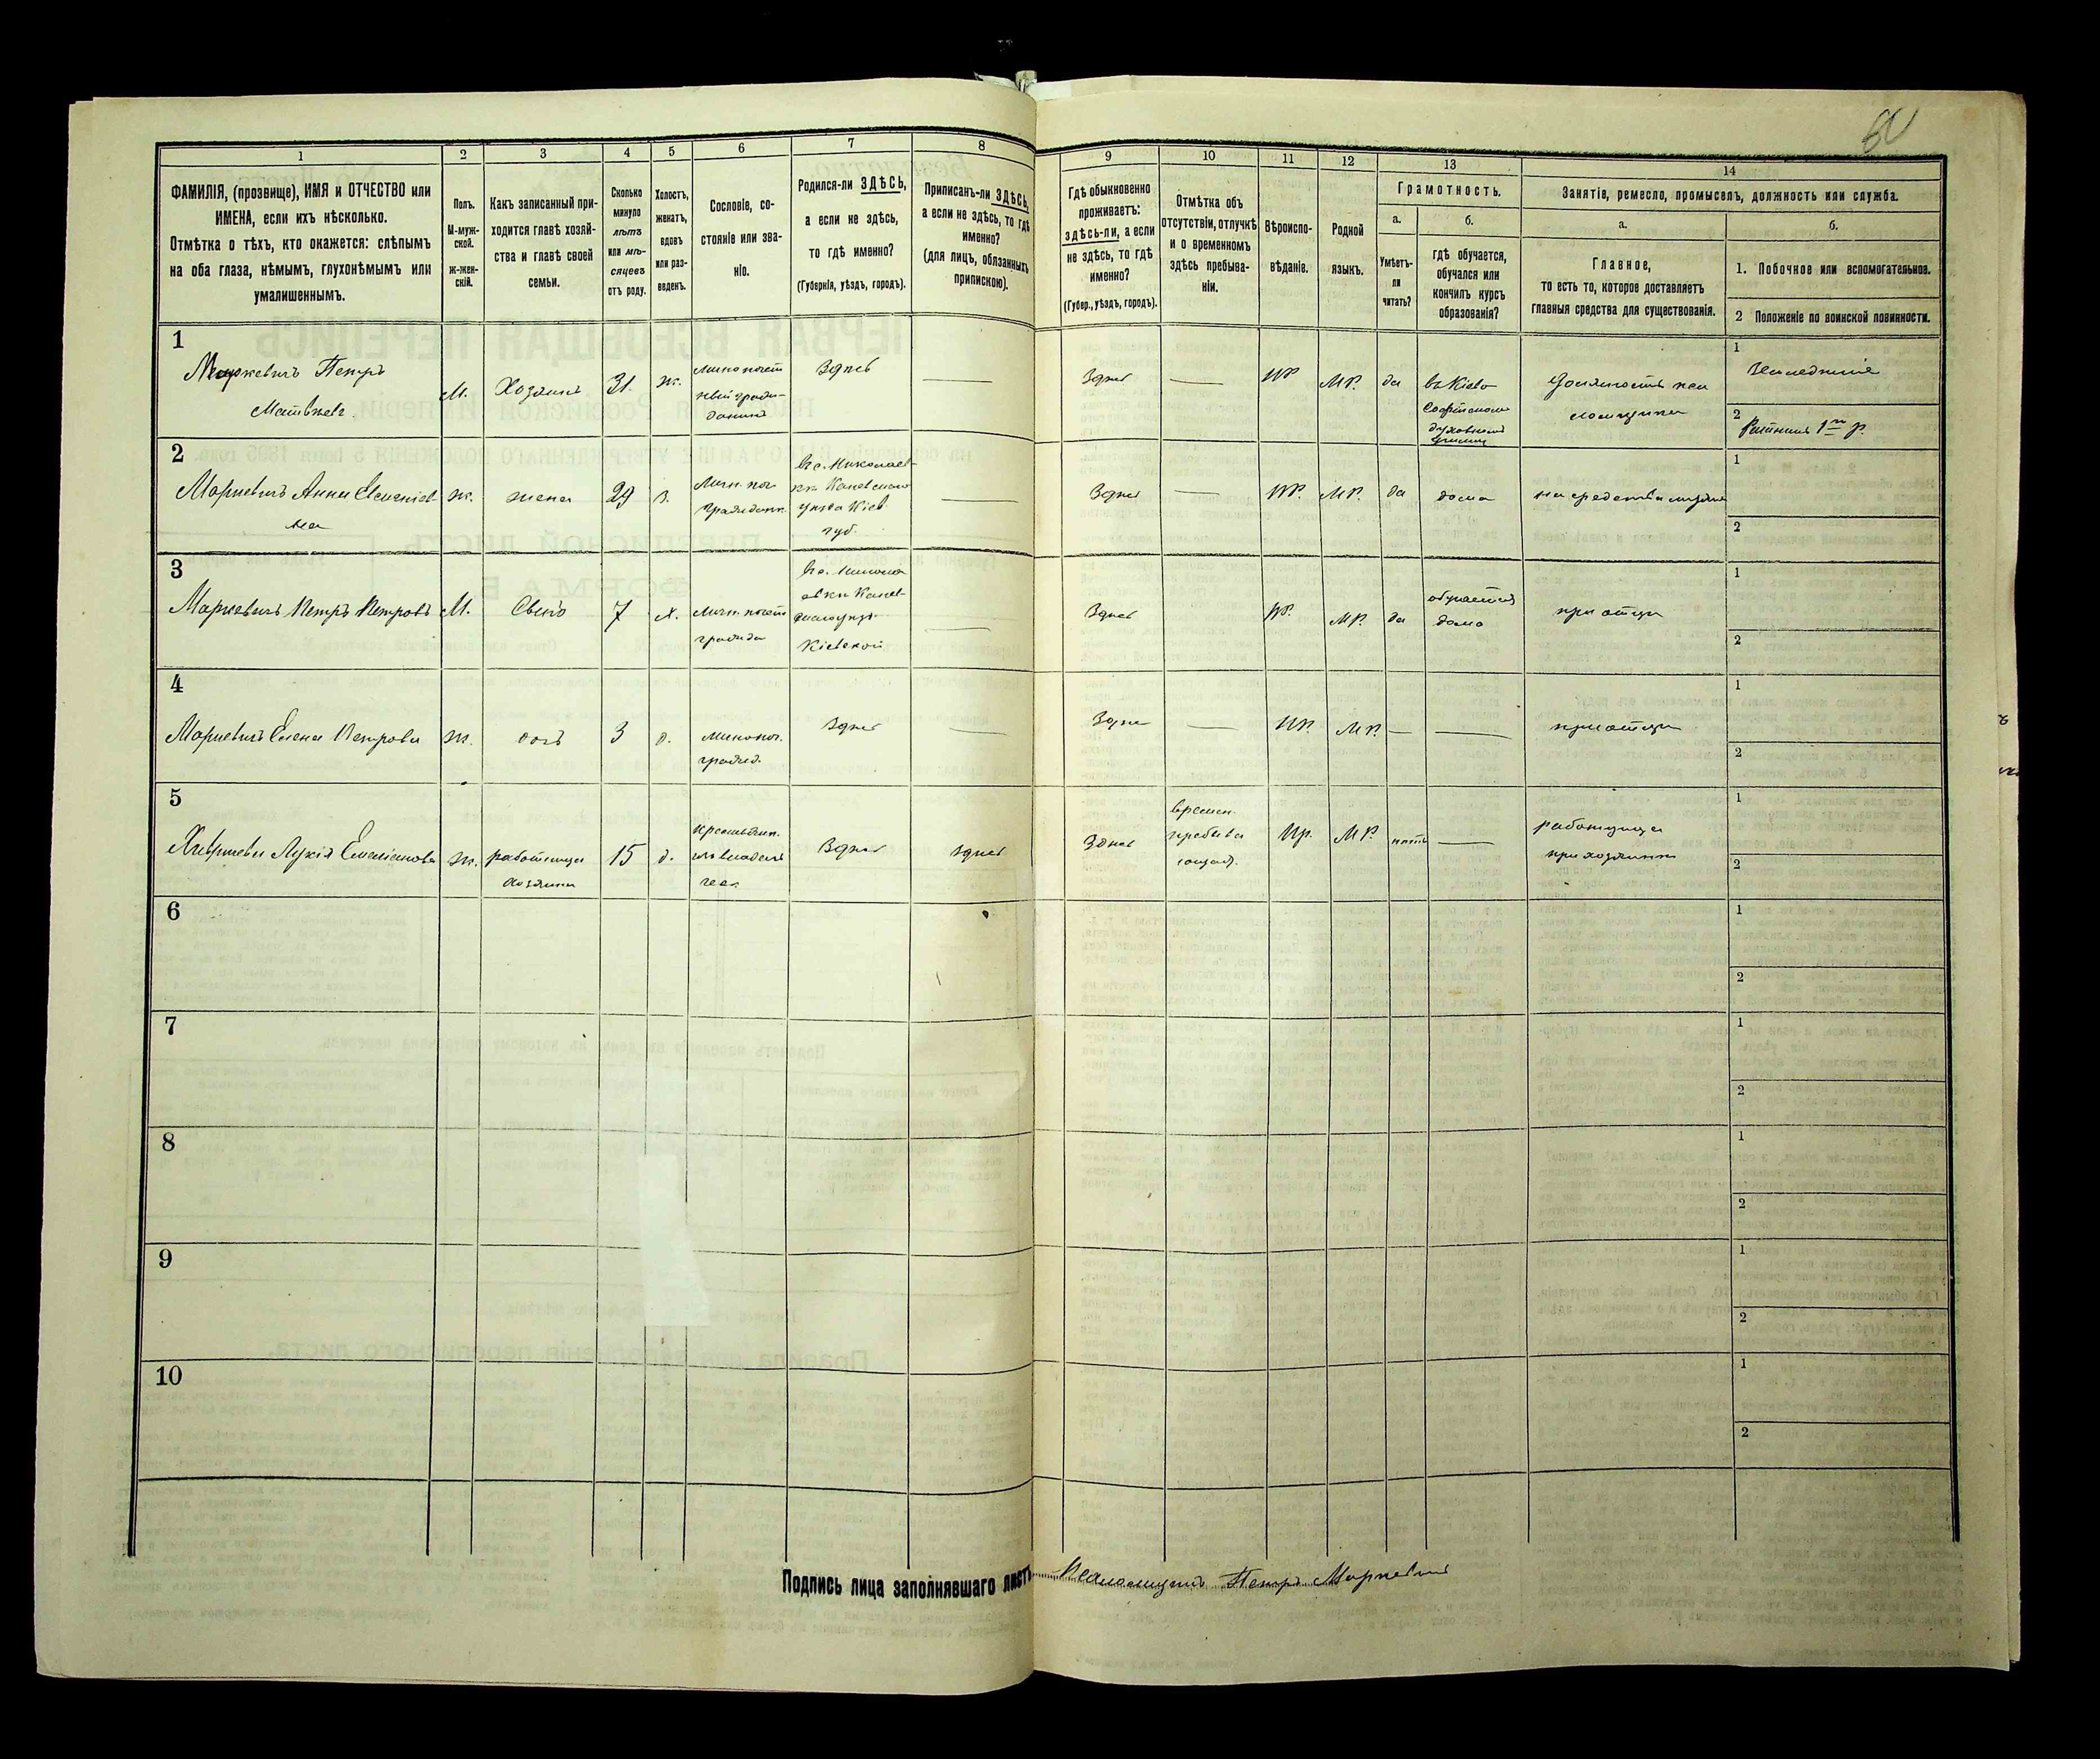 60
1
ФАМИЛІЯ, (прозвище), ИМЯ и ОТЧЕСТВО или
ИМЕНА, если ихъ нѣсколько.
Отмѣтка о тѣхъ, кто окажется: слѣпымъ
на оба глаза, нѣмымъ, глухонѣмымъ или
умалишеннымъ.
2
Полъ.
М-муж-
ской.
ж-жен-
скій.
3
Какъ записанный при-
ходится главѣ хозяй-
ства и главѣ своей
семьи.
4
Сколько
минуло
лѣтъ
или мѣ-
сяцевъ
отъ роду.
5
Холостъ,
женатъ,
вдовъ
или раз-
веденъ.
6
Сословіе, со-
стояніе или зва-
ніе.
7
Родился-ли ЗДѢСЬ,
а если не здѣсь,
то гдѣ именно?
(Губернія, уѣздъ, городъ).
8
Приписанъ-ли ЗДѢСЬ,
а если не здѣсь, то гдѣ
именно?
(для лицъ, обязанныхъ
припискою).
9
Гдѣ обыкновенно
проживаетъ:
здѣсь-ли, а если
не здѣсь, то гдѣ
именно?
(Губер., уѣздъ, городъ).
10
Отмѣтка объ
отсутствіи, отлучкѣ
и о временномъ
здѣсь пребыва-
ніи.
11
Вѣроиспо-
вѣданіе.
12
Родной
языкъ.
13
Грамотность.
а.
Умѣетъ-
ли
читать?
б.
гдѣ обучается,
обучался или
кончилъ курсъ
образованія?
14
Занятія, ремесло, промыселъ, должность или служба.
а.
Главное,
то есть то, которое доставляетъ
главныя средства для существованія.
б.
1. Побочное или вспомогательное.
2 Положеніе по воинской повинности.
1
Маркевичъ Петръ
Матвѣев.
М.
Хозяинъ
31.
ж.
Здѣсь
Здѣсь
ПР
МР.
да
въ Кіево
Софійскомъ
духовномъ
1
Земледѣліе
2
Ратникъ 1го р.
2
Маркевичъ Анна
ж.
жена
29
з.
Въ с. Николаев-
кѣ Каневскаго
уѣзда Кіев.
губ.
Здѣсь
ПР.
МР.
да
дома
на средства мужа
1
2
3
Маркевичъ Петръ Петровъ
М.
Сынъ
7
х.
Личн. почетн
гражда
Кіевской
Здѣсь
ПР.
МР.
да
обучается
дома
при отцѣ
1
2
4
Маркевичъ Елена Петрова
ж.
дочь
3
д.
гражд.
Здѣсь
Здѣсь
ПР.
МР.
при отцѣ
1
2
5
Лукія Емеліанова
ж.
работница
хозяина
15
д.
Здѣсь
здѣсь
Здѣсь
времен.
пребыва
Пр.
МР.
нѣтъ
работница
при хозяинѣ
1
2
6
1
2
7
1
2
8
1
2
9
1
2
10
1
2
Подпись лица заполнявшаго листъ Псаломщикъ Петръ Маркевичъ